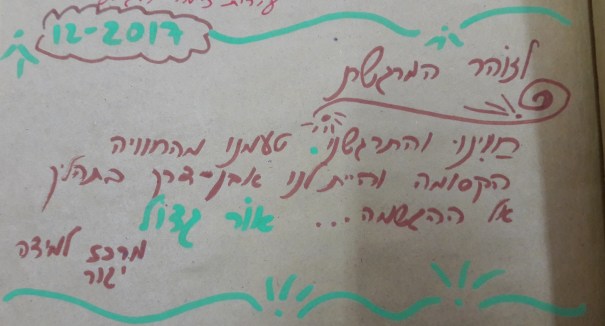 12-2017
לזוהר המרגשת
חווינו והתרגשנו. טעמנו מהחוויה
הקסומה והיית לנו אבן-דרך בתהליך
אל ההגשמה... אור גדול
מרכז למידה
יגור